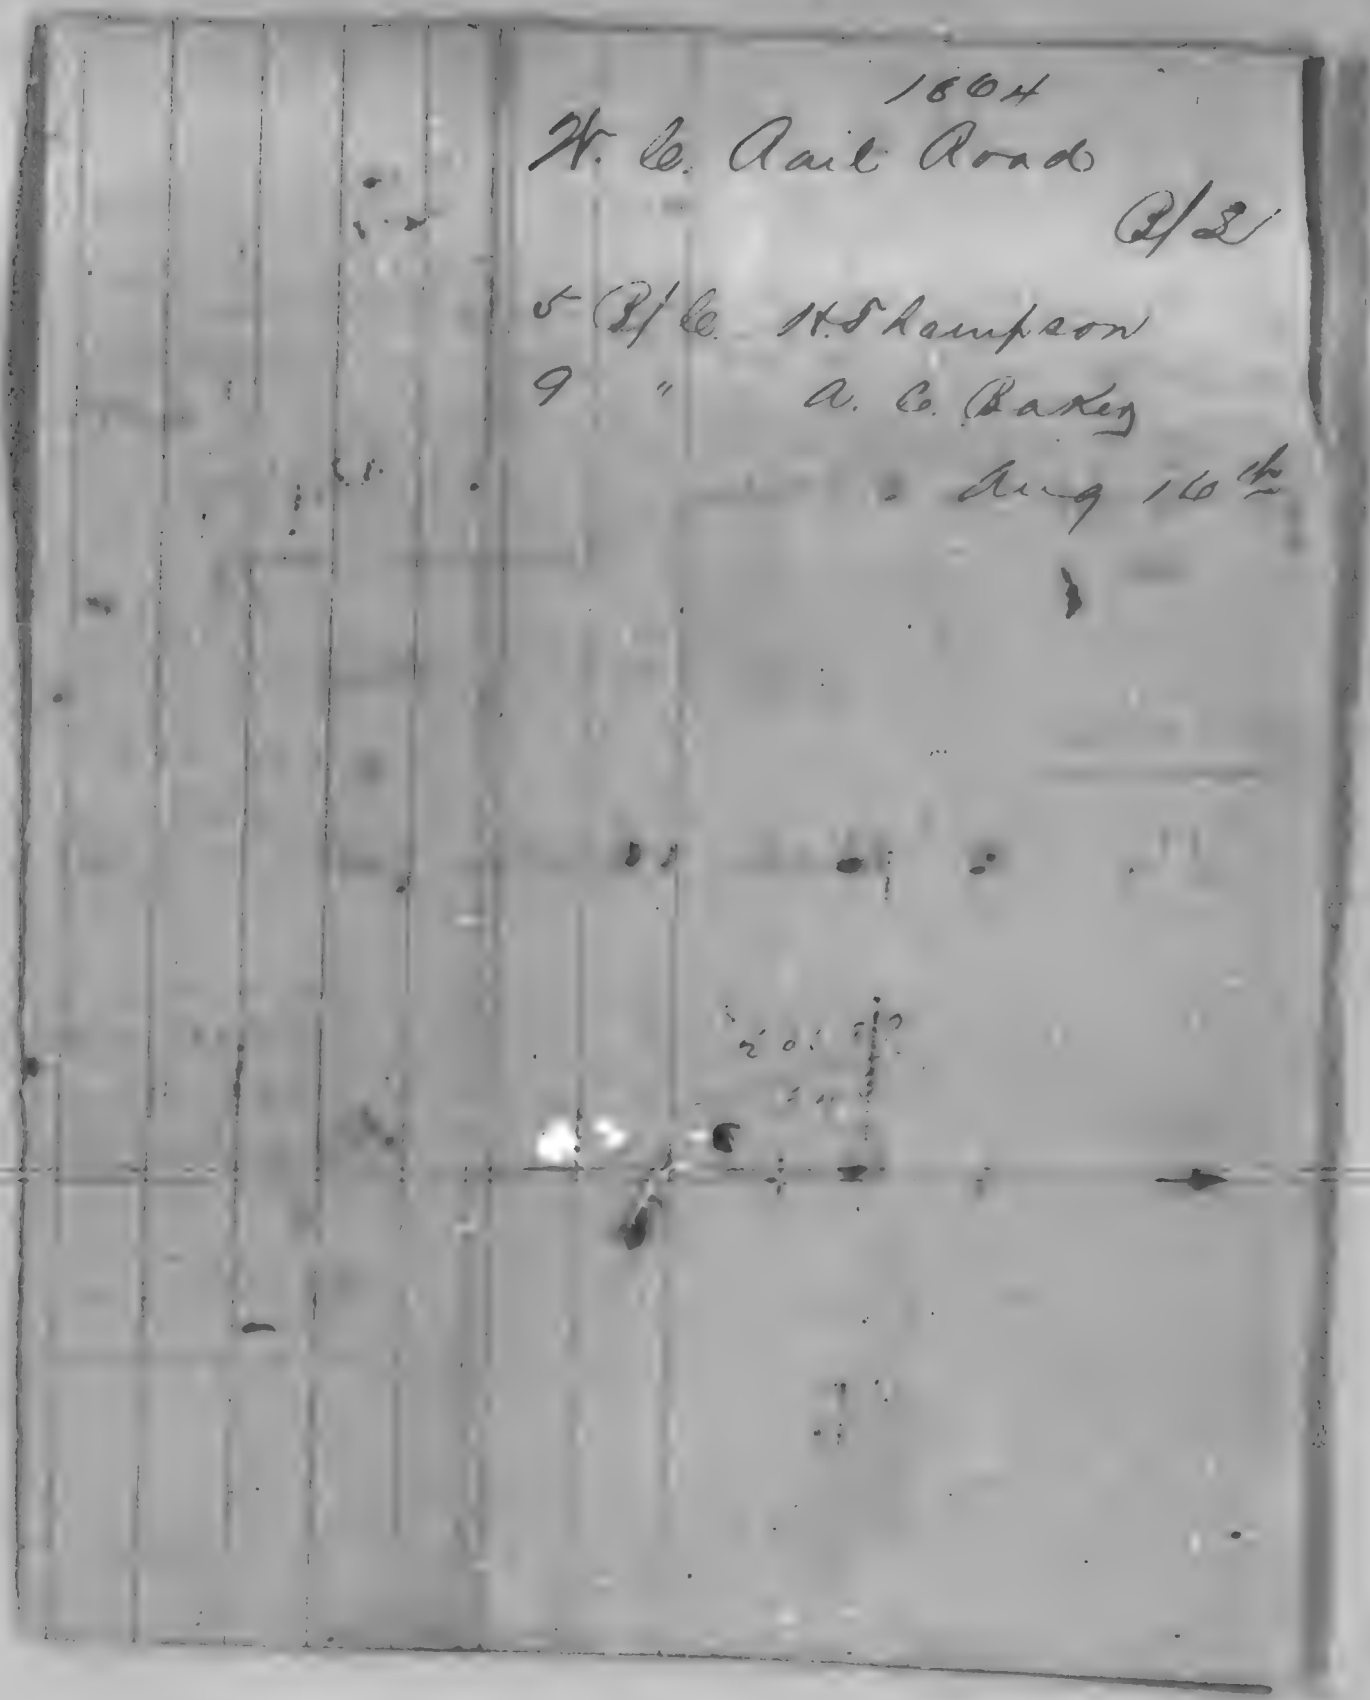 1864
W. C. Rail Road
B/L
5 B/C. H. Thompson
9 " A. C. Baker
Aug 16th